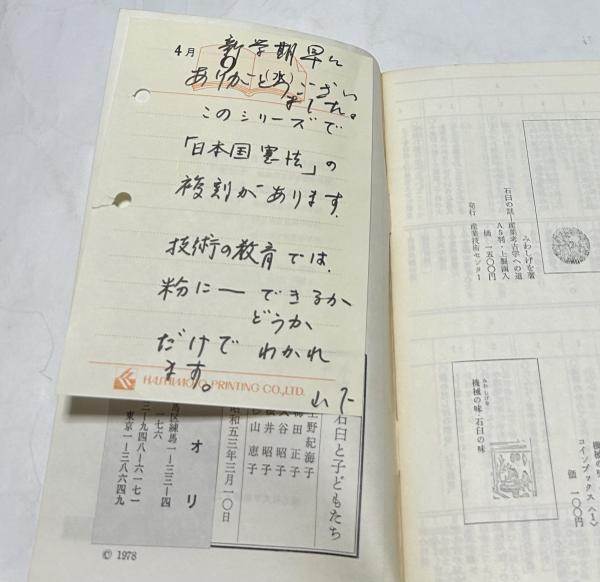 4月 新学期早々
9(水)
ありがとうござい
ました。
このシリーズで
「日本国憲法」の
複刻があります.
技術の教育では.
粉に一 できるか
どうか
だけで わかれ
ます。
HASHIMOTO PRINTING CO., LTD.
山下
石臼と子どもたち
野紀海子
梅田正子
谷昭子
井昭子
山恵子
昭和五三年三月一〇日
オリ
馬区練馬一―三三―四
一七六
三―九四八―六一七一
東京一―三八六四九
© 1978
みわしげを著
石臼の謎―産業考古学への道
A5判・上製函入
価 一五〇〇円
発行 産業技術センター
みわしげを
機械の味・石臼の味
機械の味
コインブックス〈1〉
価 一〇〇円